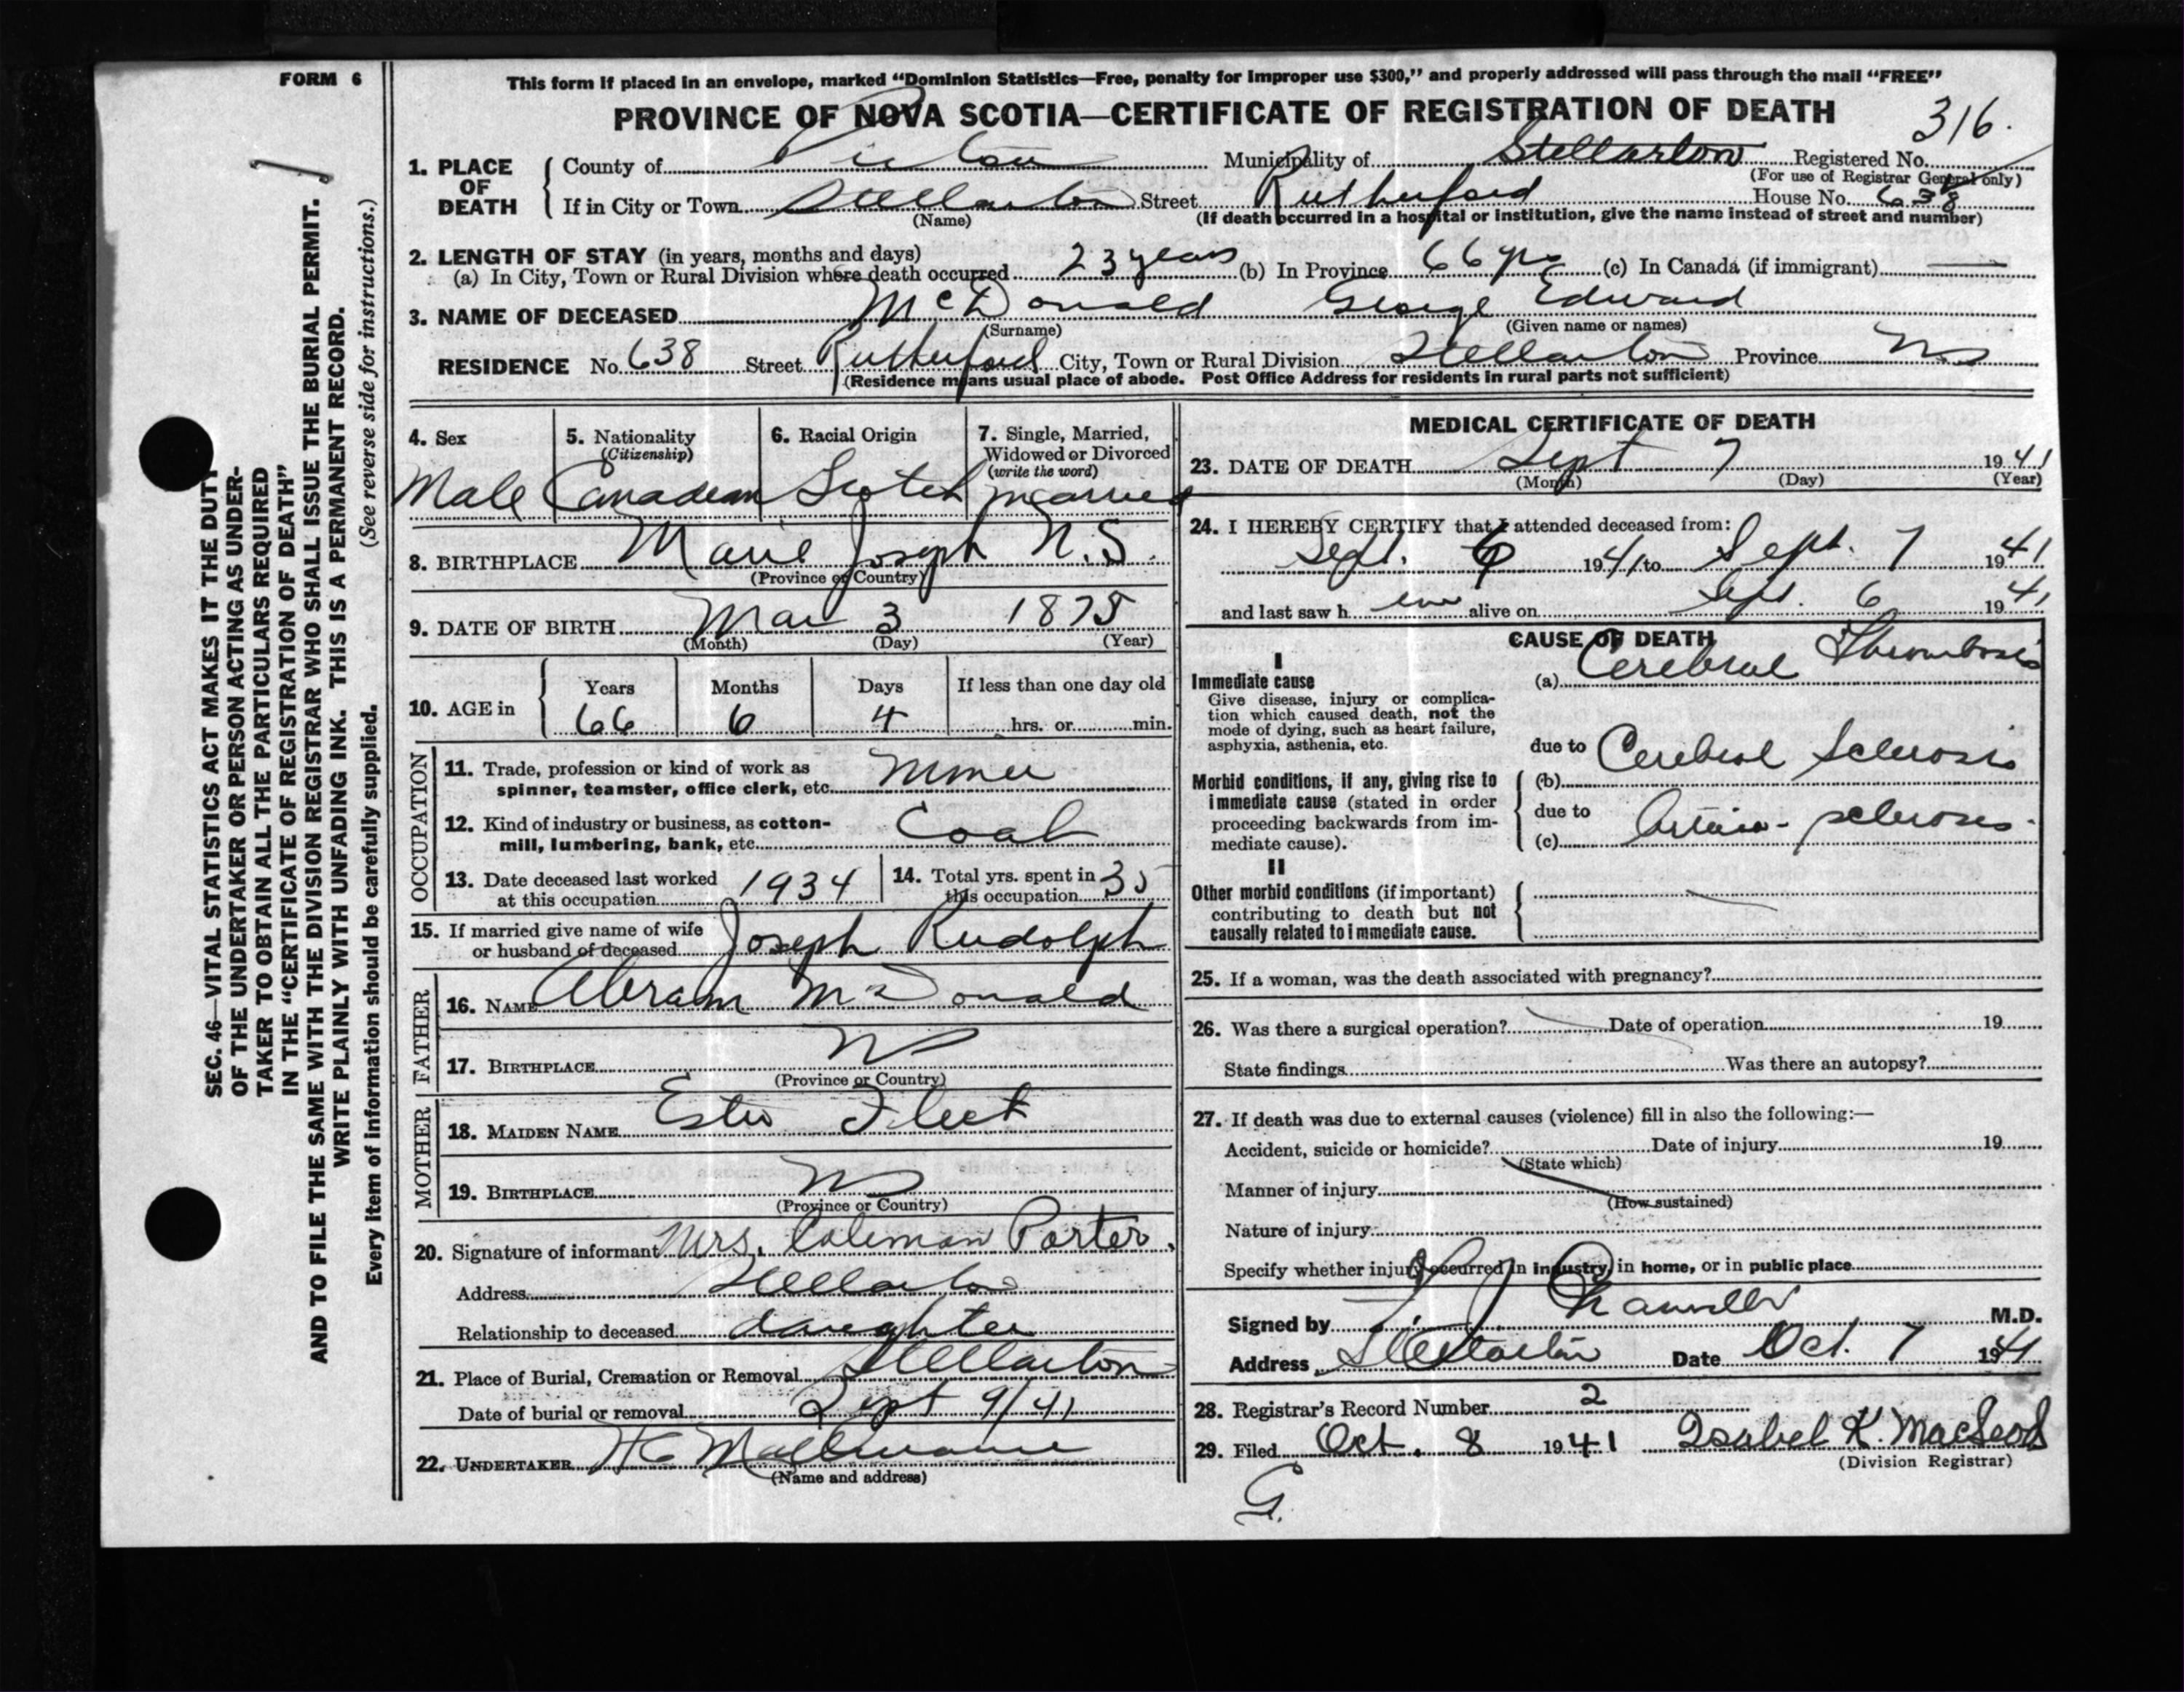 FORM 6
This form if placed in an envelope, marked “Dominion Statistics—Free, penalty for improper use $300,” and properly addressed will pass through the mail “FREE”
PROVINCE OF NOVA SCOTIA—CERTIFICATE OF REGISTRATION OF DEATH
316.
1. PLACE OF DEATH
County of Pictou Municipality of Stellarton Registered No.
(For use of Registrar General only)
If in City or Town Stellarton Street Rutherford House No. 638
(Name) (If death occurred in a hospital or institution, give the name instead of street and number)
2. LENGTH OF STAY (in years, months and days)
(a) In City, Town or Rural Division where death occurred 23 years (b) In Province 66 yrs (c) In Canada (if immigrant) —
3. NAME OF DECEASED McDonald George Edward
(Surname) (Given name or names)
RESIDENCE No. 638 Street Rutherford City, Town or Rural Division Stellarton Province NS
(Residence means usual place of abode. Post Office Address for residents in rural parts not sufficient)
4. Sex
Male
5. Nationality
(Citizenship)
Canadian
6. Racial Origin
Scotch
7. Single, Married,
Widowed or Divorced
(write the word)
Married
8. BIRTHPLACE Marie Joseph N.S.
(Province or Country)
9. DATE OF BIRTH Mar 3 1875
(Month) (Day) (Year)
10. AGE in
Years Months Days If less than one day old
66 6 4 hrs. or min.
OCCUPATION
11. Trade, profession or kind of work as
spinner, teamster, office clerk, etc. Miner
12. Kind of industry or business, as cotton-
mill, lumbering, bank, etc. Coal
13. Date deceased last worked
at this occupation 1934
14. Total yrs. spent in
this occupation 35
15. If married give name of wife
or husband of deceased Joseph Rudolph
FATHER
16. NAME Abram McDonald
17. BIRTHPLACE NS
(Province or Country)
MOTHER
18. MAIDEN NAME Ester Fleet
19. BIRTHPLACE NS
(Province or Country)
20. Signature of informant Mrs. Coleman Porter
Address Stellarton
Relationship to deceased daughter
21. Place of Burial, Cremation or Removal Stellarton
Date of burial or removal Sept 9/41
22. UNDERTAKER
(Name and address)
MEDICAL CERTIFICATE OF DEATH
23. DATE OF DEATH Sept 7 1941
(Month) (Day) (Year)
24. I HEREBY CERTIFY that I attended deceased from:
Sept. 6 1941 to Sept. 7 1941
and last saw h im alive on Sept. 6 1941
CAUSE OF DEATH
I
Immediate cause
Give disease, injury or complica-
tion which caused death, not the
mode of dying, such as heart failure,
asphyxia, asthenia, etc.
(a) Cerebral Thrombosis
due to
Morbid conditions, if any, giving rise to
immediate cause (stated in order
proceeding backwards from im-
mediate cause).
(b) Cerebral Sclerosis
due to
(c) Arterio-sclerosis.
II
Other morbid conditions (if important)
contributing to death but not
causally related to immediate cause.
25. If a woman, was the death associated with pregnancy?
26. Was there a surgical operation? Date of operation 19
State findings Was there an autopsy?
27. If death was due to external causes (violence) fill in also the following:—
Accident, suicide or homicide? Date of injury 19
(State which)
Manner of injury
(How sustained)
Nature of injury
Specify whether injury occurred in industry, in home, or in public place
Signed by M.D.
Address Stellarton Date Oct. 7 1941
28. Registrar's Record Number 2
29. Filed Oct. 8 1941 Isabel K. MacLeod
(Division Registrar)
G.
SEC. 46—VITAL STATISTICS ACT MAKES IT THE DUTY
OF THE UNDERTAKER OR PERSON ACTING AS UNDER-
TAKER TO OBTAIN ALL THE PARTICULARS REQUIRED
IN THE “CERTIFICATE OF REGISTRATION OF DEATH”
AND TO FILE THE SAME WITH THE DIVISION REGISTRAR WHO SHALL ISSUE THE BURIAL PERMIT.
WRITE PLAINLY WITH UNFADING INK. THIS IS A PERMANENT RECORD.
(See reverse side for instructions.)
Every item of information should be carefully supplied.